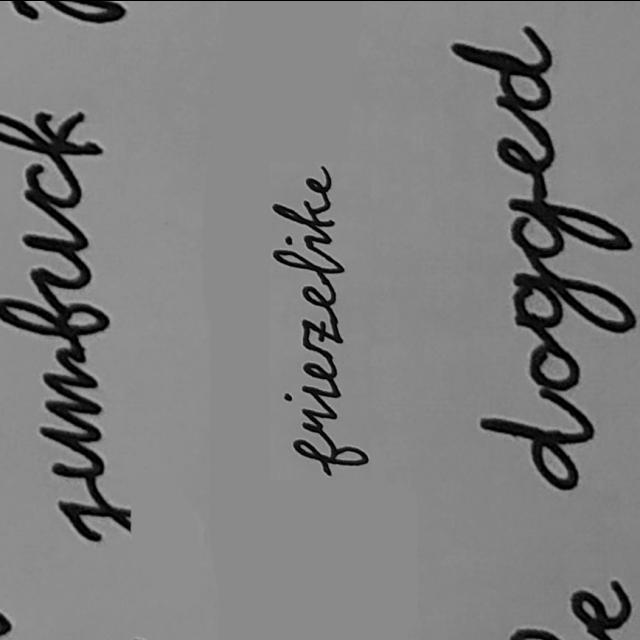 jumbuck
friezelike
dogged